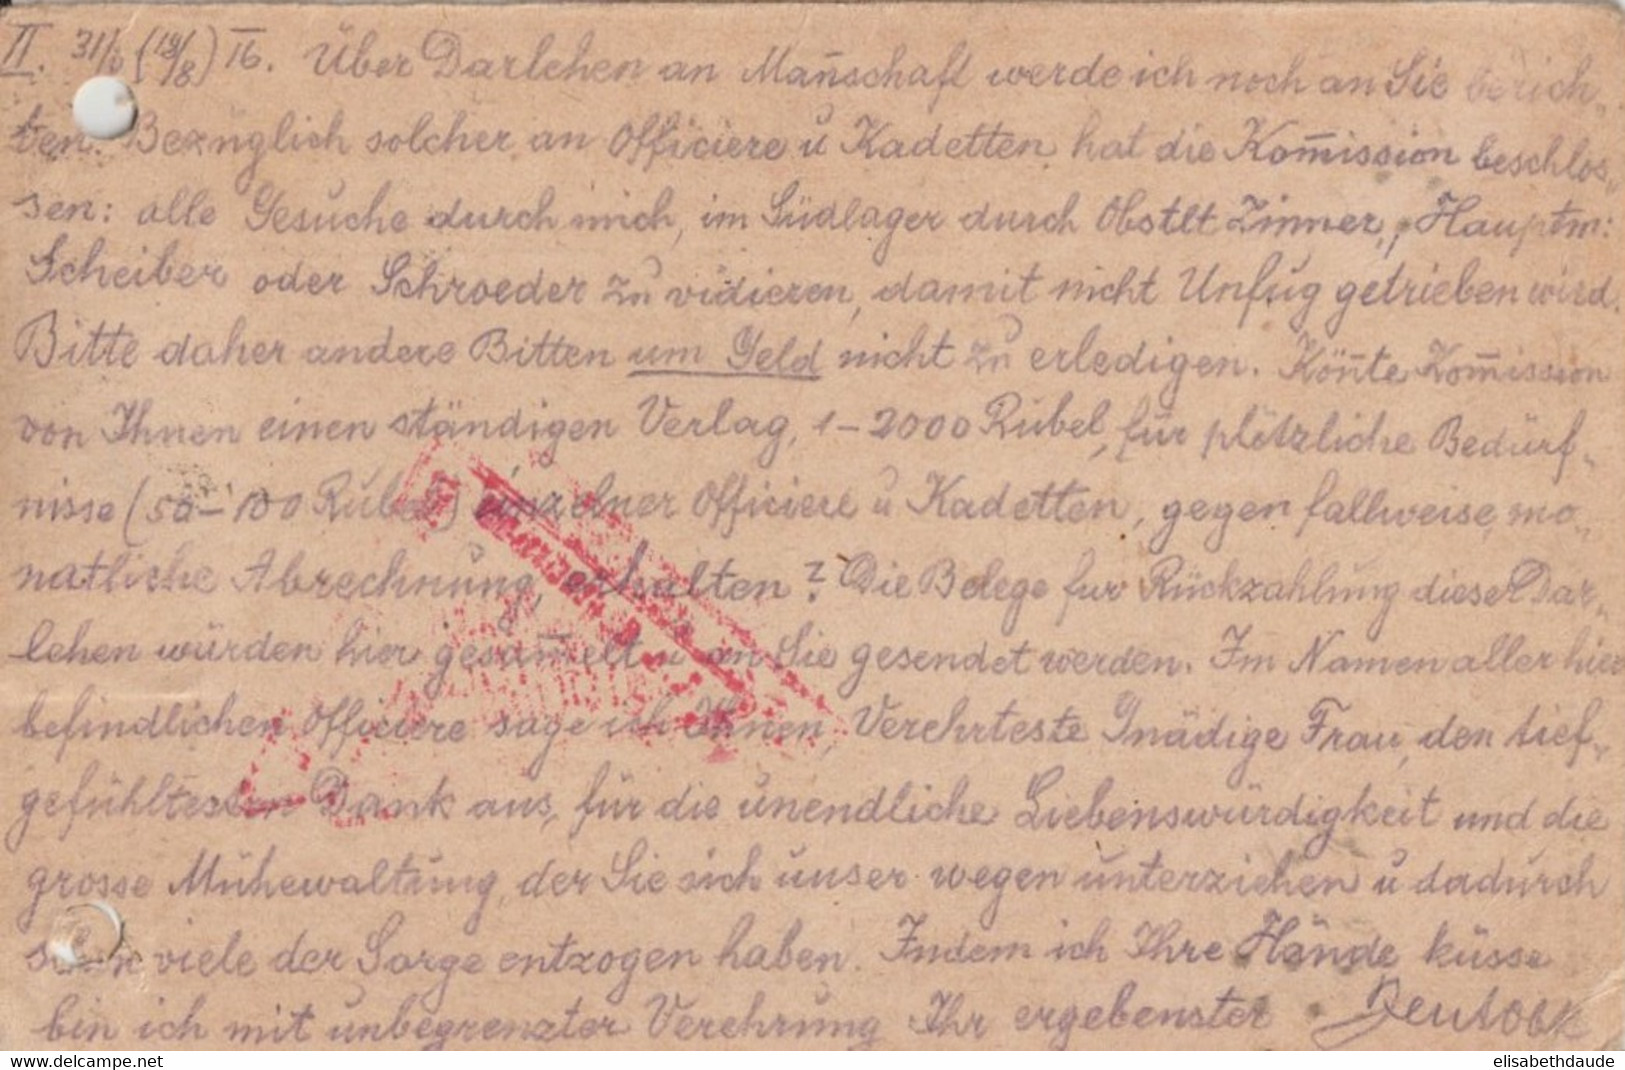 II. 31/8 (18/8) 16. Über Darlehen an Man̄schaft werde ich noch an Sie berich-
ten. Bezüglich solcher an Officiere u Kadetten hat die Kom̄ission beschlos-
sen: alle Gesuche durch mich, im Südlager durch Obstlt Zinner, Hauptm:
Scheiber oder Schroeder zu vidieren, damit nicht Unfug getrieben wird.
Bitte daher andere Bitten um Geld nicht zu erledigen. Kön̄te Kom̄ission
von Ihnen einen ständigen Verlag, 1-2000 Rubel, für plötzliche Bedürf-
nisse (50-100 Rubel) einzelner Officiere u Kadetten, gegen fallweise, mo-
natliche Abrechnung, erhalten? Die Belege für Rückzahlung dieser Dar-
lehen würden hier gesam̄elt u an Sie gesendet werden. Im Namen aller hier
befindlichen Officiere sage ich Ihnen, Verehrteste Gnädige Frau, den tief-
gefühltesten Dank aus, für die unendliche Liebenswürdigkeit und die
grosse Mühewaltung, der Sie sich unser wegen unterziehen u dadurch
schon viele der Sorge entzogen haben. Indem ich Ihre Hände küsse
bin ich mit unbegrenzter Verehrung Ihr ergebenster
elisabethdaude